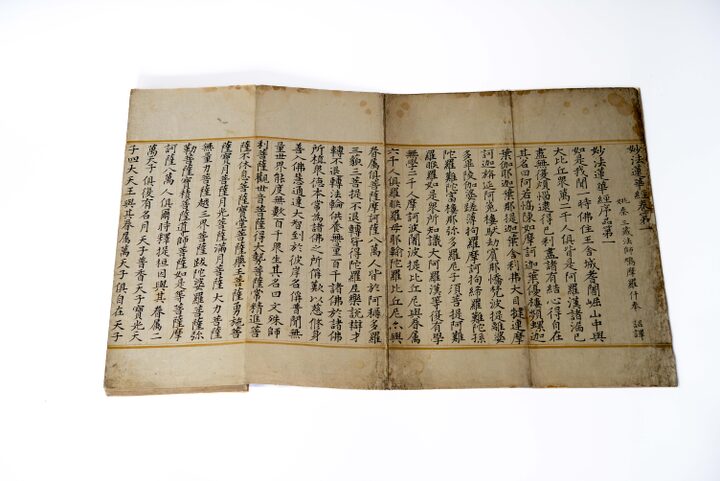 妙法蓮華經卷第一
姚秦三藏法師鳩摩羅什奉 詔譯
妙法蓮華經序品第一
如是我聞一時佛住王舍城耆闍崛山中與
大比丘眾萬二千人俱皆是阿羅漢諸漏已
盡無復煩惱逮得己利盡諸有結心得自在
其名曰阿若憍陳如摩訶迦葉優樓頻螺迦
葉伽耶迦葉那提迦葉舍利弗大目揵連摩
訶迦栴延阿㝹樓馱劫賓那憍梵波提離婆
多畢陵伽婆蹉薄拘羅摩訶拘絺羅難陀孫
陀羅難陀富樓那彌多羅尼子須菩提阿難
羅睺羅如是眾所知識大阿羅漢等復有學
無學二千人摩訶波闍波提比丘尼與眷屬
六千人俱羅睺羅母耶輸陀羅比丘尼亦與
眷屬俱菩薩摩訶薩八萬人皆於阿耨多羅
三藐三菩提不退轉皆得陀羅尼樂說辯才
轉不退轉法輪供養無量百千諸佛於諸佛
所植眾德本常為諸佛之所稱歎以慈修身
善入佛慧通達大智到於彼岸名稱普聞無
量世界能度無數百千眾生其名曰文殊師
利菩薩觀世音菩薩得大勢菩薩常精進菩
薩不休息菩薩寶掌菩薩藥王菩薩勇施菩
薩寶月菩薩月光菩薩滿月菩薩大力菩薩
無量力菩薩越三界菩薩跋陀婆羅菩薩彌
勒菩薩寶積菩薩導師菩薩如是等菩薩摩
訶薩八萬人俱爾時釋提桓因與其眷屬二
萬天子俱復有名月天子普香天子寶光天
子四大天王與其眷屬萬天子俱自在天子